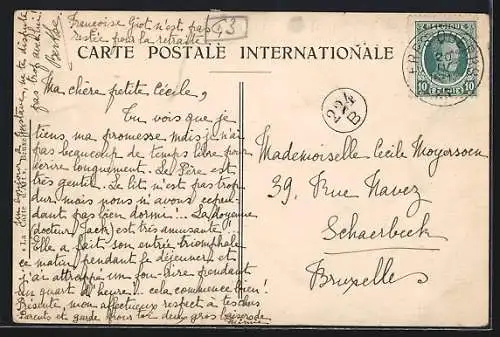 Françoise Giot n'est pas
restée pour la retraite
G3
CARTE POSTALE INTERNATIONALE
BELGIQUE
10
10
224
B
Ma chère petite Cécile,
Tu vois que je
tiens ma promesse mais je n'ai
pas beaucoup de temps libre pour
écrire longuement. Le Père est
très gentil. Le lit n'est pas trop
dur mais nous n'avons cepen-
dant pas bien dormi!.. La doyenne
(docteur Jack) est très amusante..
Elle a fait son entrée triomphale
ce matin pendant le déjeuner et
j'ai attrappé un fou-rire pendant
un quart d'heure!.. cela commence bien!
Présente, mon affectueux respect à tes chers
Parents et garde pour toi deux gros baisers de
Mademoiselle Cécile Moyersoen
39, Rue Navez
Schaerbeek
Bruxelles